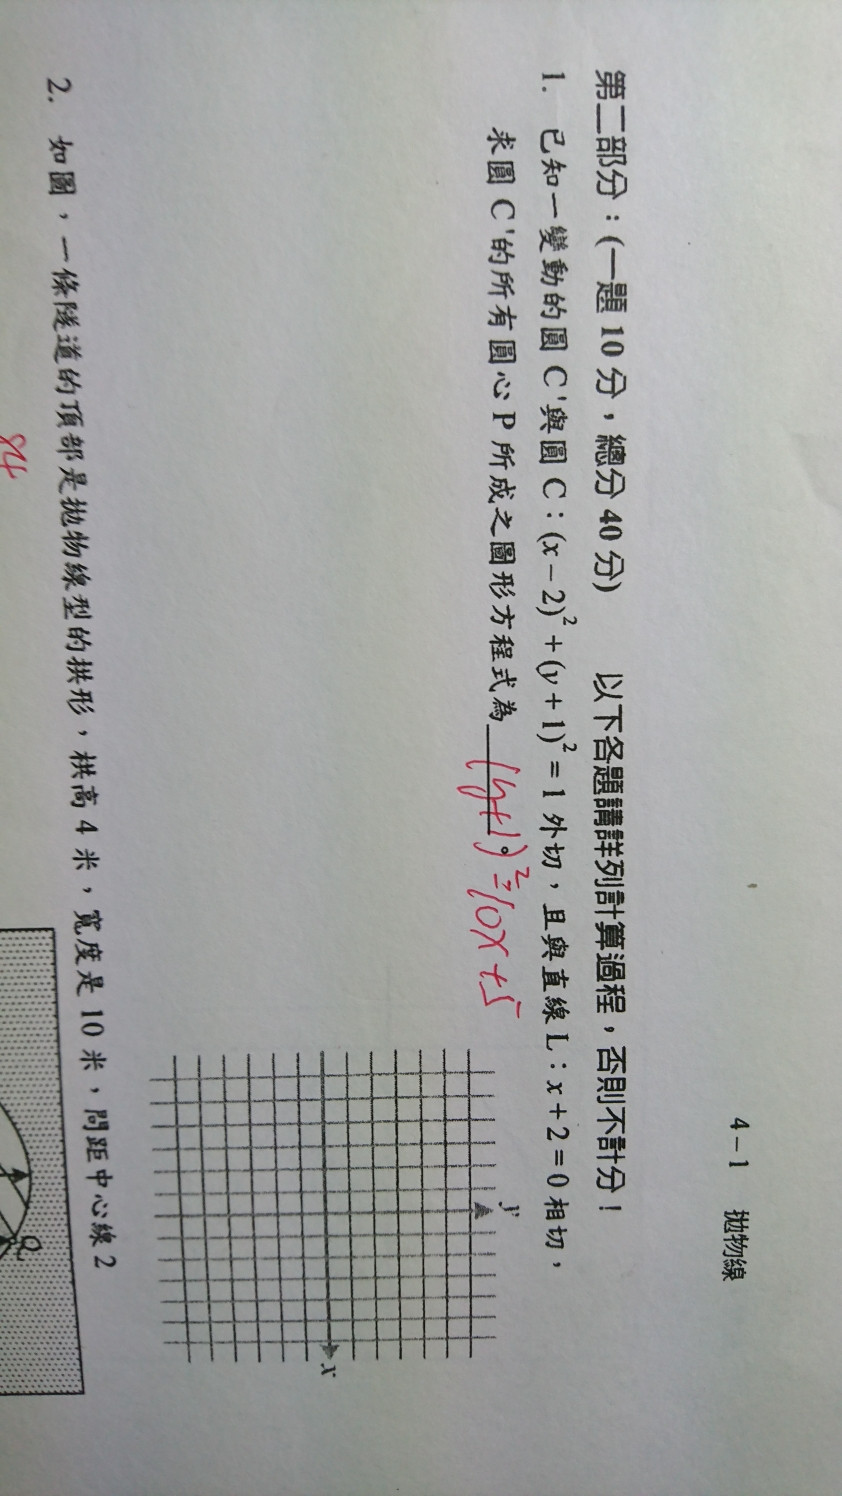 4－1 拋物線
第二部分：(一題 10 分，總分 40 分) 以下各題請詳列計算過程，否則不計分！
1. 已知一變動的圓 C'與圓 C：(x－2)²＋(y＋1)²＝1 外切，且與直線 L：x＋2＝0 相切，
求圓 C'的所有圓心 P 所成之圖形方程式為 (y+1)²=10x+5 。
y
x
2. 如圖，一條隧道的頂部是拋物線型的拱形，栱高 4 米，寬度是 10 米，問距中心線 2